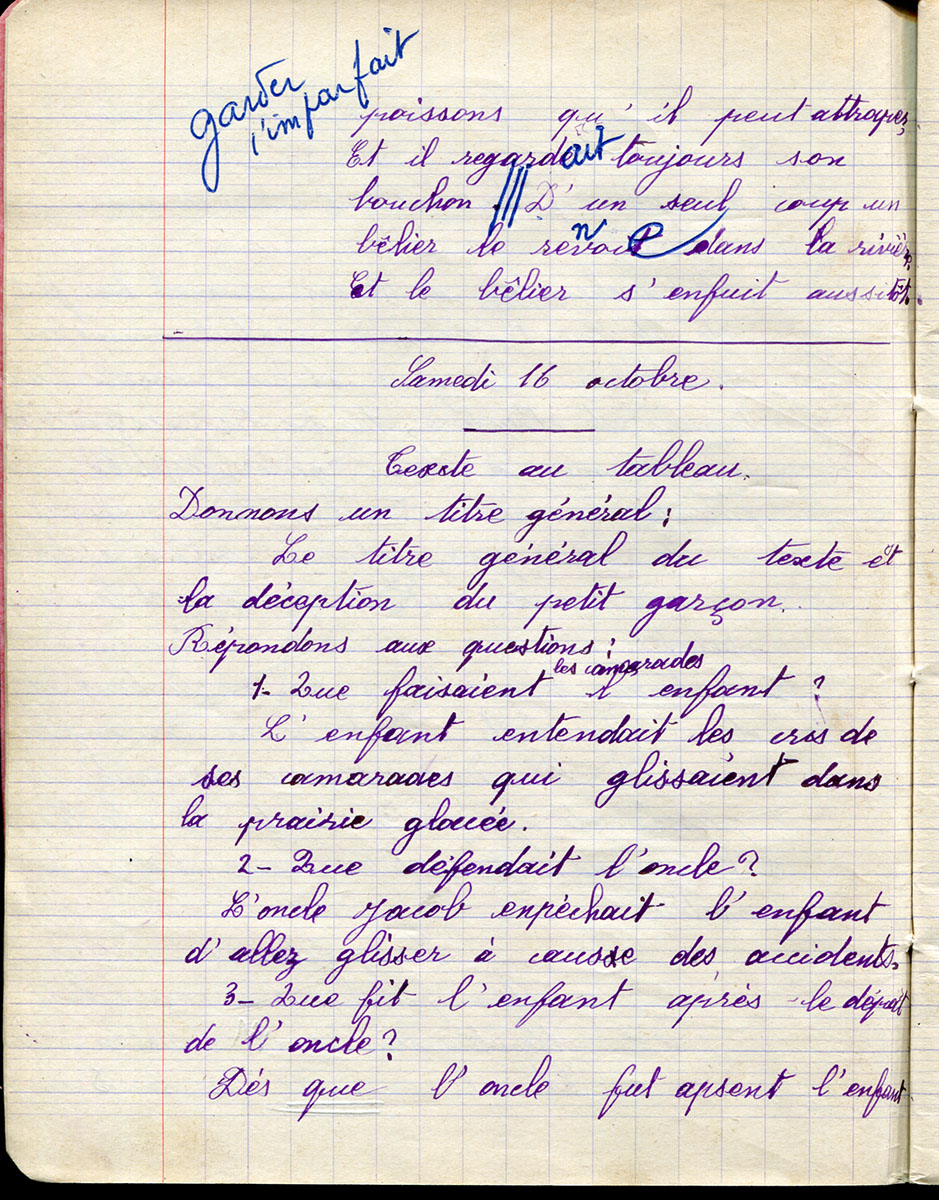 garder
l'imparfait
poissons qu'il peut attraper,
Et il regardait toujours son
bouchon. D'un seul coup un
bêlier le renverse dans la rivière.
Et le bêlier s'enfuit aussitôt.
Samedi 16 octobre.
Texte au tableau.
Donnons un titre général :
Le titre général du texte et
la déception du petit garçon.
Répondons aux questions :
les camarades
1- Que faisaient l'enfant ?
L'enfant entendait les cris de
ses camarades qui glissaient dans
la prairie glacée.
2- Que défendait l'oncle ?
L'oncle Jacob enpéchait l'enfant
d'allez glisser à causse des accidents.
3- Que fit l'enfant après le départ
de l'oncle ?
Dés que l'oncle fut apsent l'enfant